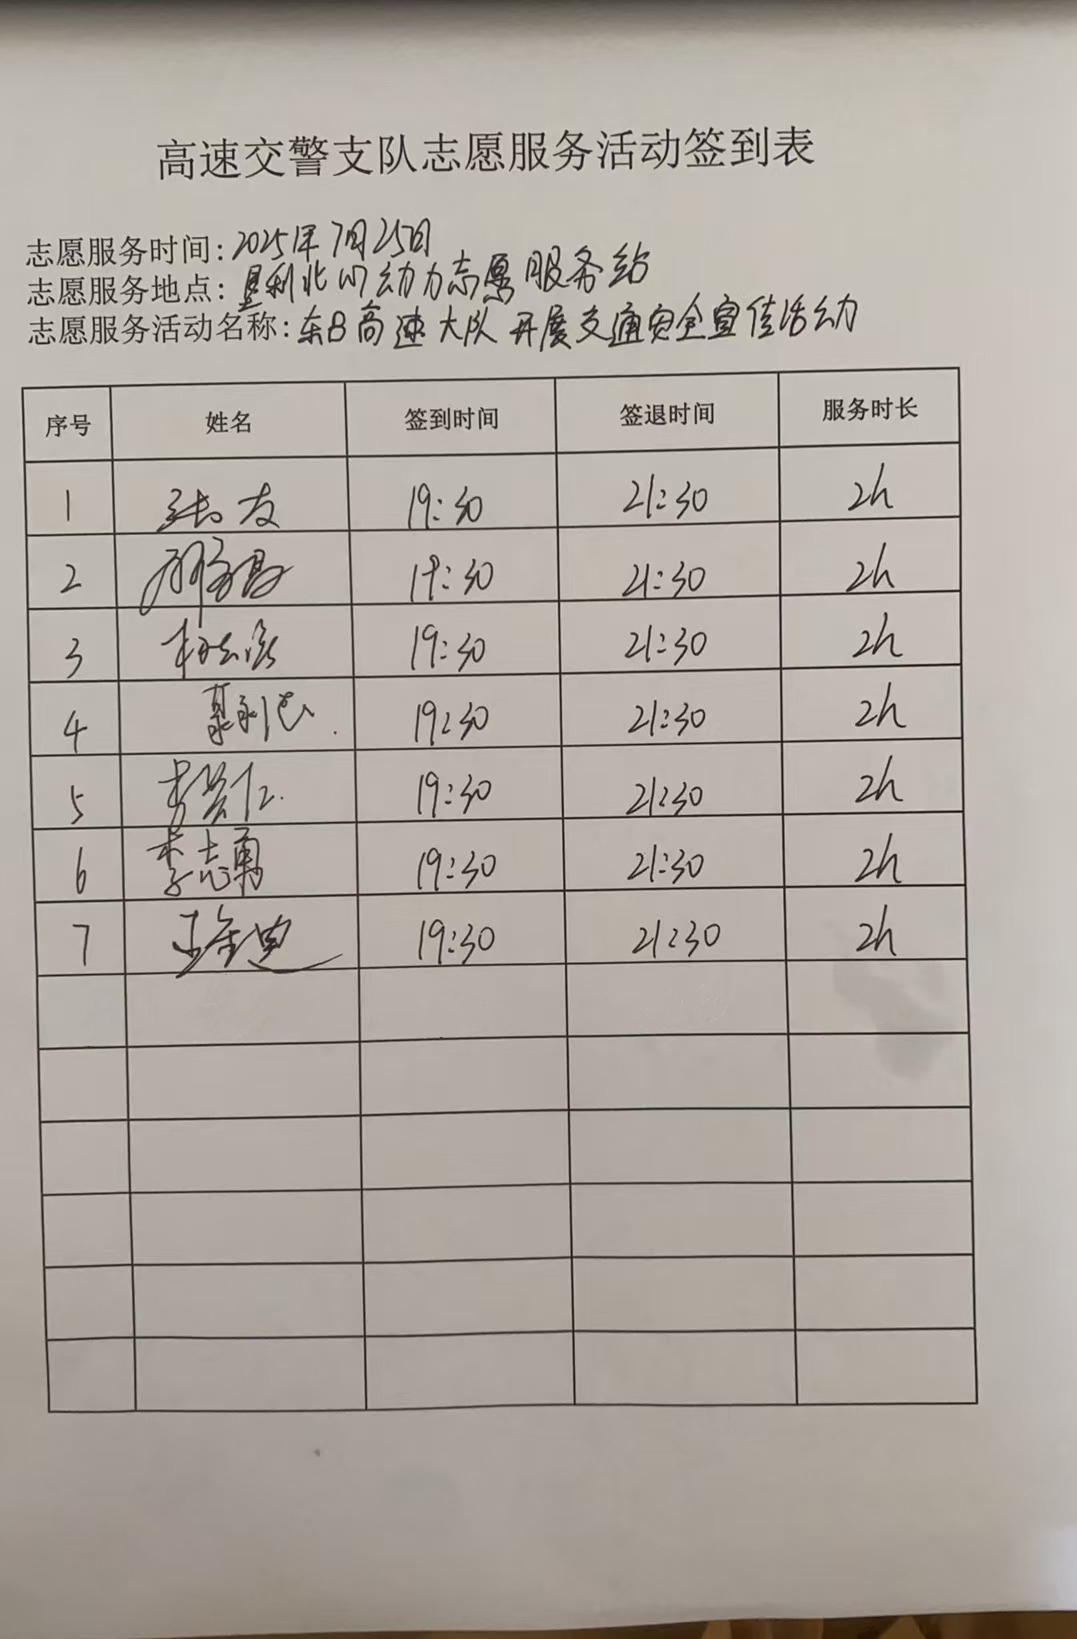 高速交警支队志愿服务活动签到表
志愿服务时间:2025年7月25日
志愿服务地点:垦利北门动力志愿服务站
志愿服务活动名称:东B高速大队开展交通安全宣传活动
序号 姓名 签到时间 签退时间 服务时长
1 张友 19:30 21:30 2h
2 19:30 21:30 2h
3 19:30 21:30 2h
4 19:30 21:30 2h
5 19:30 21:30 2h
6 李志勇 19:30 21:30 2h
7 19:30 21:30 2h